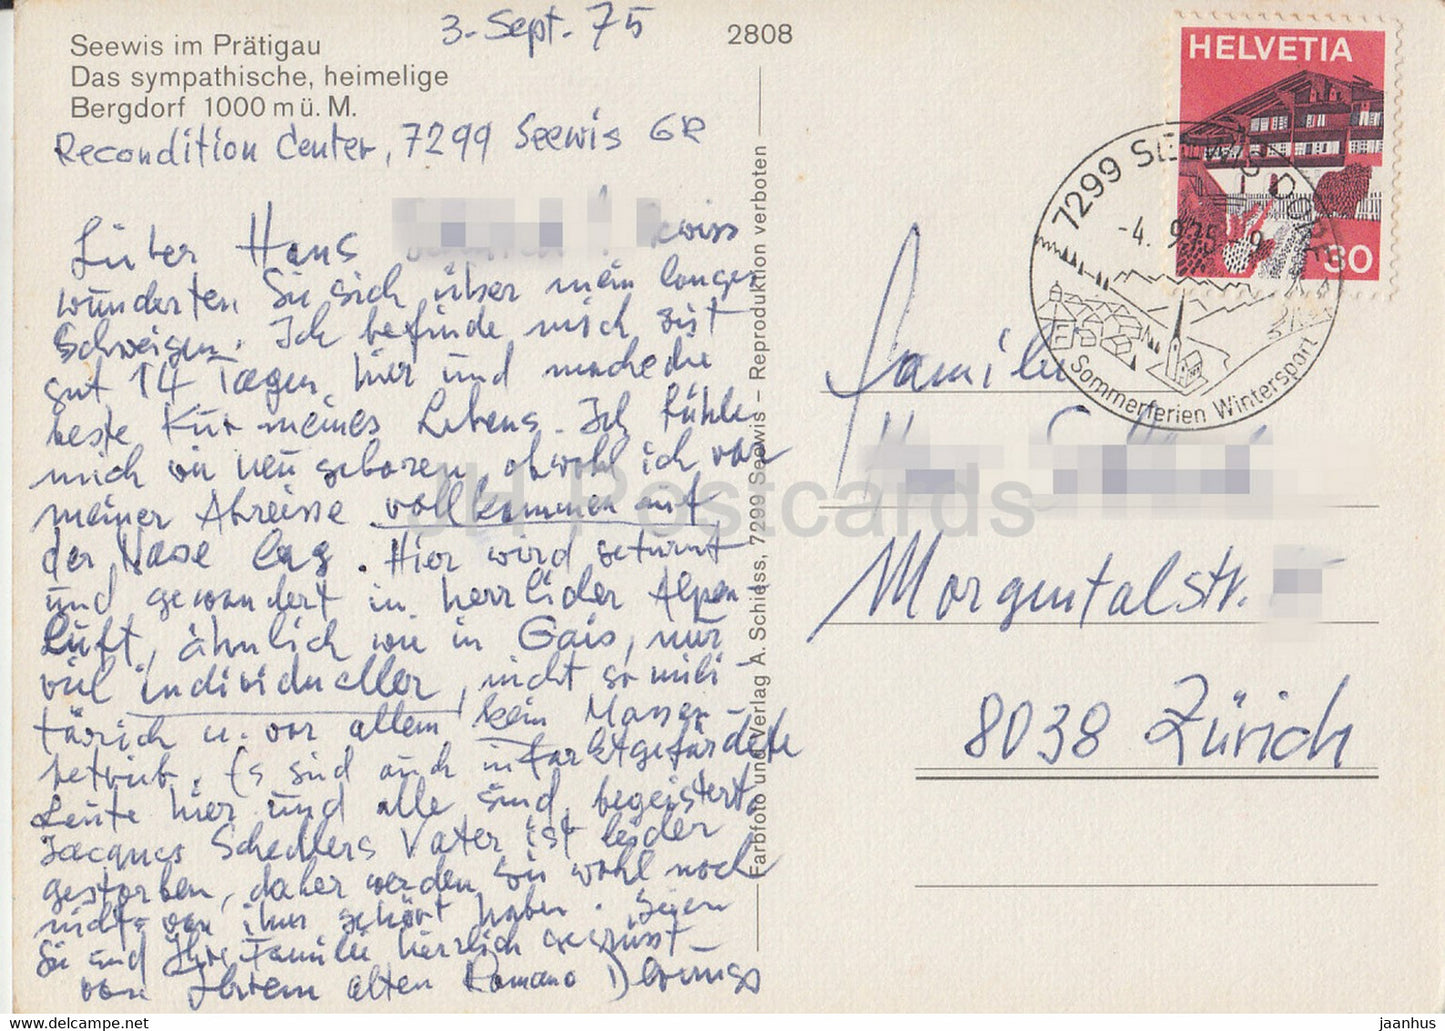 3. Sept. 75
Seewis im Prätigau
Das sympathische, heimelige
Bergdorf 1000 m ü. M.
2808
Recondition Center, 7299 Seewis GR
Lieber Hans
wunderten Sie sich über mein langes
Schweigen. Ich befinde mich seit
gut 14 Tagen hier und mache die
beste Kur meines Lebens. Ich fühle
mich wie neu geboren, obwohl ich vor
meiner Abreise vollkommen auf
der Nase lag. Hier wird geturnt
und gewandert in herrlicher Alpen-
luft, ähnlich wie in Gais, nur
viel individueller, nicht so mili
tärisch u. vor allem kein Massen-
betrieb. Es sind auch infarktgefärdete
Leute hier und alle sind begeistert.
Jacques Schedlers Vater ist leider
gestorben, daher werden Sie wohl noch
nichts von ihm gehört haben. Seien
Sie und Ihre Familie herzlich gegrüsst
von Ihrem alten Romano
Farbfoto und Verlag A. Schiess, 7299 Seewis – Reproduktion verboten
HELVETIA
30
7299 SEEWIS DORF
-4. 9.75 - 9
Sommerferien Wintersport
Familie
Morgentalstr.
8038 Zürich
JH Postcards
https://jhpostcards.com
jaanhus — delcampe.net